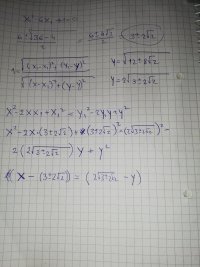 x² - 6x₁ + 1 = 0
6 ± √36-4 / 2 = 6 ± 4√2 / 2 (3±2√2)
1 = √(x-x₁)²+(y₁-y)² / √(x-x₁)²+(y₁-y)²
y = √12±8√2
y = 2√3±2√2
x² - 2xx₁ + x₁² = y₁² - 2y₁y + y²
x² - 2x·(3±2√2) + (3±2√2)² = (2√3±2√2)² -
2(2√3±2√2)y + y²
(x - (3±2√2)) = (2√3±2√2 - y)